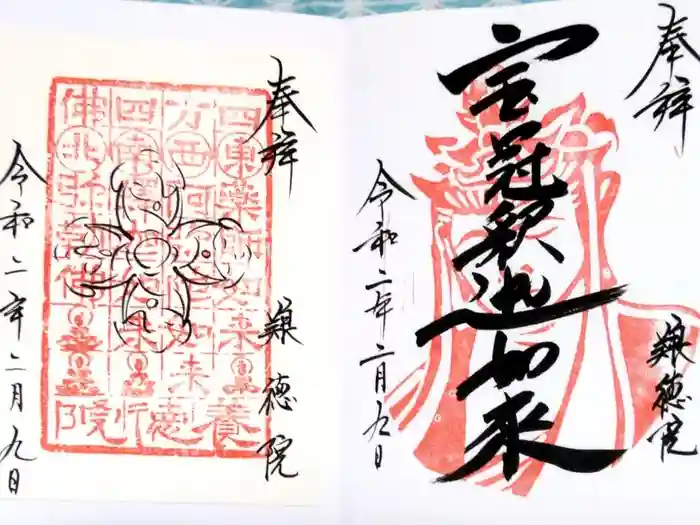 奉拝
宝冠釈迦如来
令和二年二月九日
羪徳院
奉拝
四方四佛
東薬師如来
西阿弥陀如来
南釋迦如来
北弥勒佛
羪徳院
令和二年二月九日